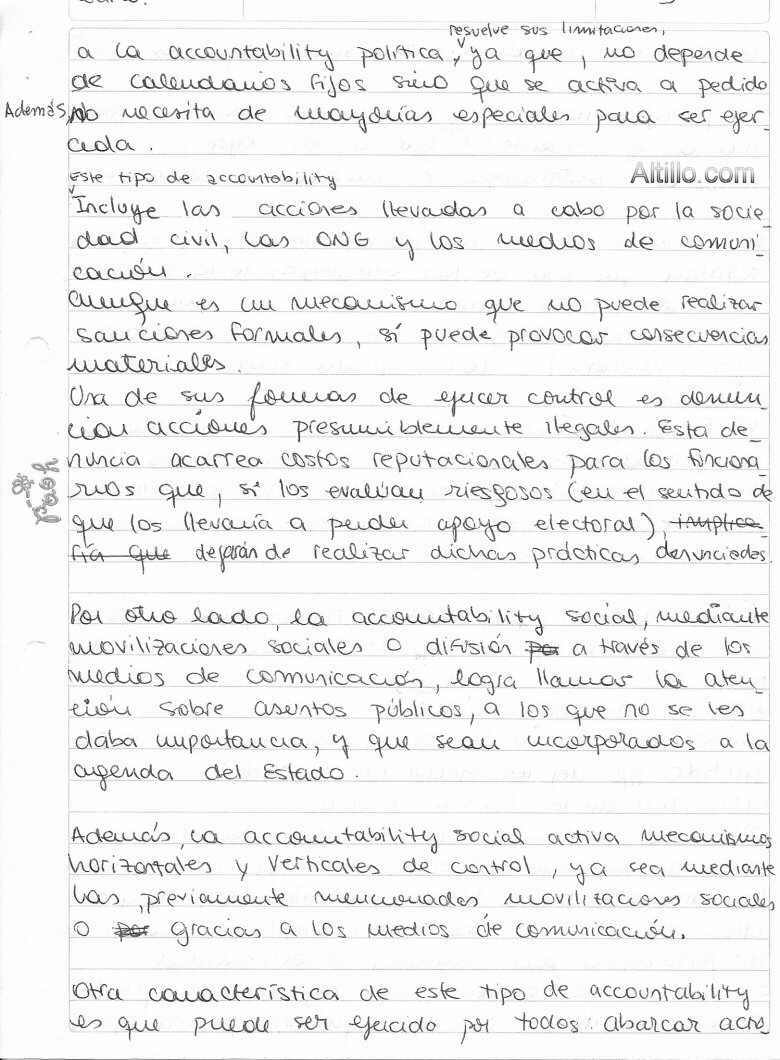 resuelve sus limitaciones,
a la accountability política, ya que, no depende
de calendarios fijos sino que se activa a pedido
Además, no necesita de mayorías especiales para ser ejer
cida.
Este tipo de accountability
Altillo.com
Incluye las acciones llevadas a cabo por la socie
dad civil, las ONG y los medios de comuni
cación.
Aunque es un mecanismo que no puede realizar
sanciones formales, sí puede provocar consecuencias
materiales.
Una de sus formas de ejercer control es denun
cian acciones presumiblemente ilegales. Esta de
nuncia acarrea costos reputacionales para los funciona
rios que, si los evalúan riesgosos (en el sentido de
que los llevaría a perder apoyo electoral), implica
ría que dejarán de realizar dichas prácticas denunciadas.
Por otro lado, la accountability social, mediante
movilizaciones sociales o difusión por a través de los
medios de comunicación, logra llamar la aten
ción sobre asuntos públicos, a los que no se les
daba importancia, y que sean incorporados a la
agenda del Estado.
Además, la accountability social activa mecanismos
horizontales y verticales de control, ya sea mediante
las, previamente mencionadas movilizaciones sociales
o por gracias a los medios de comunicación.
Otra característica de este tipo de accountability
es que puede ser ejercido por todos: abarcar acto